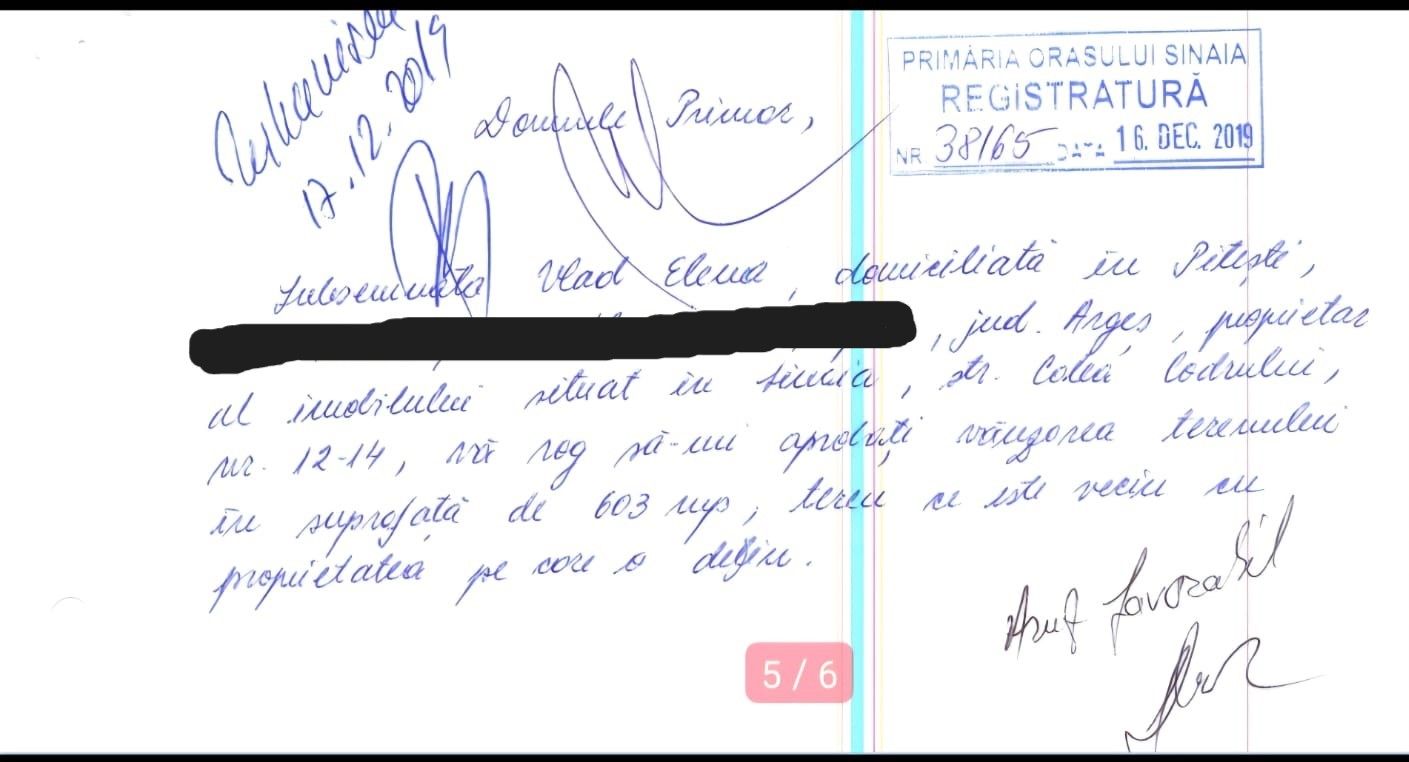 17.12.2019
PRIMĂRIA ORASULUI SINAIA
REGISTRATURĂ
NR 38165 DATA 16. DEC. 2019
Domnule Primar,
Subsemnata Vlad Elena, domiciliată în Pitești,
, jud. Argeș, proprietar
al imobilului situat în Sinaia, str. Calea Codrului,
nr. 12-14, vă rog să-mi aprobați vânzarea terenului
în suprafață de 603 mp, teren ce este vecin cu
proprietatea pe care o dețin.
Aviz favorabil
5 / 6